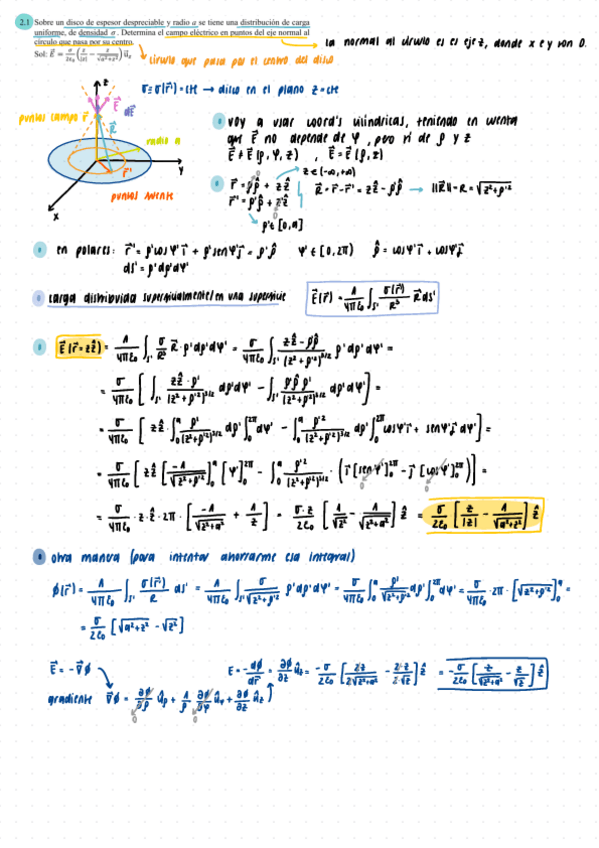 2.1 Sobre un disco de espesor despreciable y radio a se tiene una distribución de carga
uniforme, de densidad σ. Determina el campo eléctrico en puntos del eje normal al
círculo que pasa por su centro.
Sol: E⃗ = σ/2ε₀ (z/|z| − z/√(a²+z²)) u⃗z
la normal al círculo es es eje z, donde x e y son 0.
círculo que pasa por el centro del disco
σ ≡ σ(r⃗) = cte → disco en el plano z = cte
z
E⃗
dE⃗
puntos campo r⃗
R⃗
radio a
r⃗'
y
x
puntos fuente
voy a usar coord's cilíndricas, teniendo en cuenta
que E⃗ no depende de φ, pero sí de ρ y z
E⃗ ≠ E⃗(ρ, φ, z) , E⃗ = E⃗(ρ, z)
z ∈ (-∞, +∞)
r⃗ = ρρ̂ + zẑ
0
R⃗ = r⃗ - r⃗' = zẑ - ρ'ρ̂ → ||R⃗|| = R = √(z² + ρ'²)
r⃗' = ρ'ρ̂ + z'ẑ
0
ρ' ∈ [0, a]
en polares: r⃗' = ρ'cosφ' i⃗ + ρ'senφ' j⃗ = ρ'ρ̂ φ' ∈ [0, 2π) ρ̂ = cosφ' i⃗ + cosφ' j⃗
ds' = ρ'dρ'dφ'
carga distribuida superficialmente/en una superficie
E⃗(r⃗) = 1/4πε₀ ∫s' σ(r⃗')/R³ R⃗ ds'
E⃗(r⃗ = zẑ) = 1/4πε₀ ∫s' σ/R³ R⃗ · ρ'dρ'dφ' = σ/4πε₀ ∫s' (zẑ - ρ'ρ̂)/(z² + ρ'²)^3/2 ρ'dρ'dφ' =
= σ/4πε₀ [∫s' zẑ·ρ'/(z² + ρ'²)^3/2 dρ'dφ' - ∫s' ρ'ρ̂ρ'/(z² + ρ'²)^3/2 dρ'dφ'] =
= σ/4πε₀ [zẑ · ∫₀ᵃ ρ'/(z² + ρ'²)^3/2 dρ' ∫₀^2π dφ' - ∫₀ᵃ ρ'²/(z² + ρ'²)^3/2 dρ' ∫₀^2π cosφ' i⃗ + senφ' j⃗ dφ'] =
= σ/4πε₀ [zẑ [-1/√(z² + ρ'²)]₀ᵃ [φ']₀^2π - ∫₀ᵃ ρ'²/(z² + ρ'²)^3/2 · (i⃗ [senφ']₀^2π - j⃗ [cosφ']₀^2π)] =
0 0
= σ/4πε₀ · z · ẑ · 2π · [-1/√(z² + a²) + 1/z] = σ·z/2ε₀ [1/√z² - 1/√(z² + a²)] ẑ = σ/2ε₀ [z/|z| - 1/√(a² + z²)] ẑ
otra manera (para intentar ahorrarme esa integral)
φ(r⃗) = 1/4πε₀ ∫s' σ(r⃗')/R ds' = 1/4πε₀ ∫s' σ/√(z² + ρ'²) ρ'dρ'dφ' = σ/4πε₀ ∫₀ᵃ ρ'/√(z² + ρ'²) dρ' ∫₀^2π dφ' = σ/4πε₀ · 2π · [√(z² + ρ'²)]₀ᵃ =
= σ/2ε₀ [√(a² + z²) - √z²]
E⃗ = -∇⃗φ
E = -dφ/dr⃗ = ∂φ/∂z û_z = -σ/2ε₀ [2z/2√(z² + a²) - 2·z/2·√z²] ẑ = -σ/2ε₀ [z/√(z² + a²) - z/√z²] ẑ
gradiente ∇⃗φ = ∂φ/∂ρ û_ρ + 1/ρ ∂φ/∂φ û_φ + ∂φ/∂z û_z
0 0